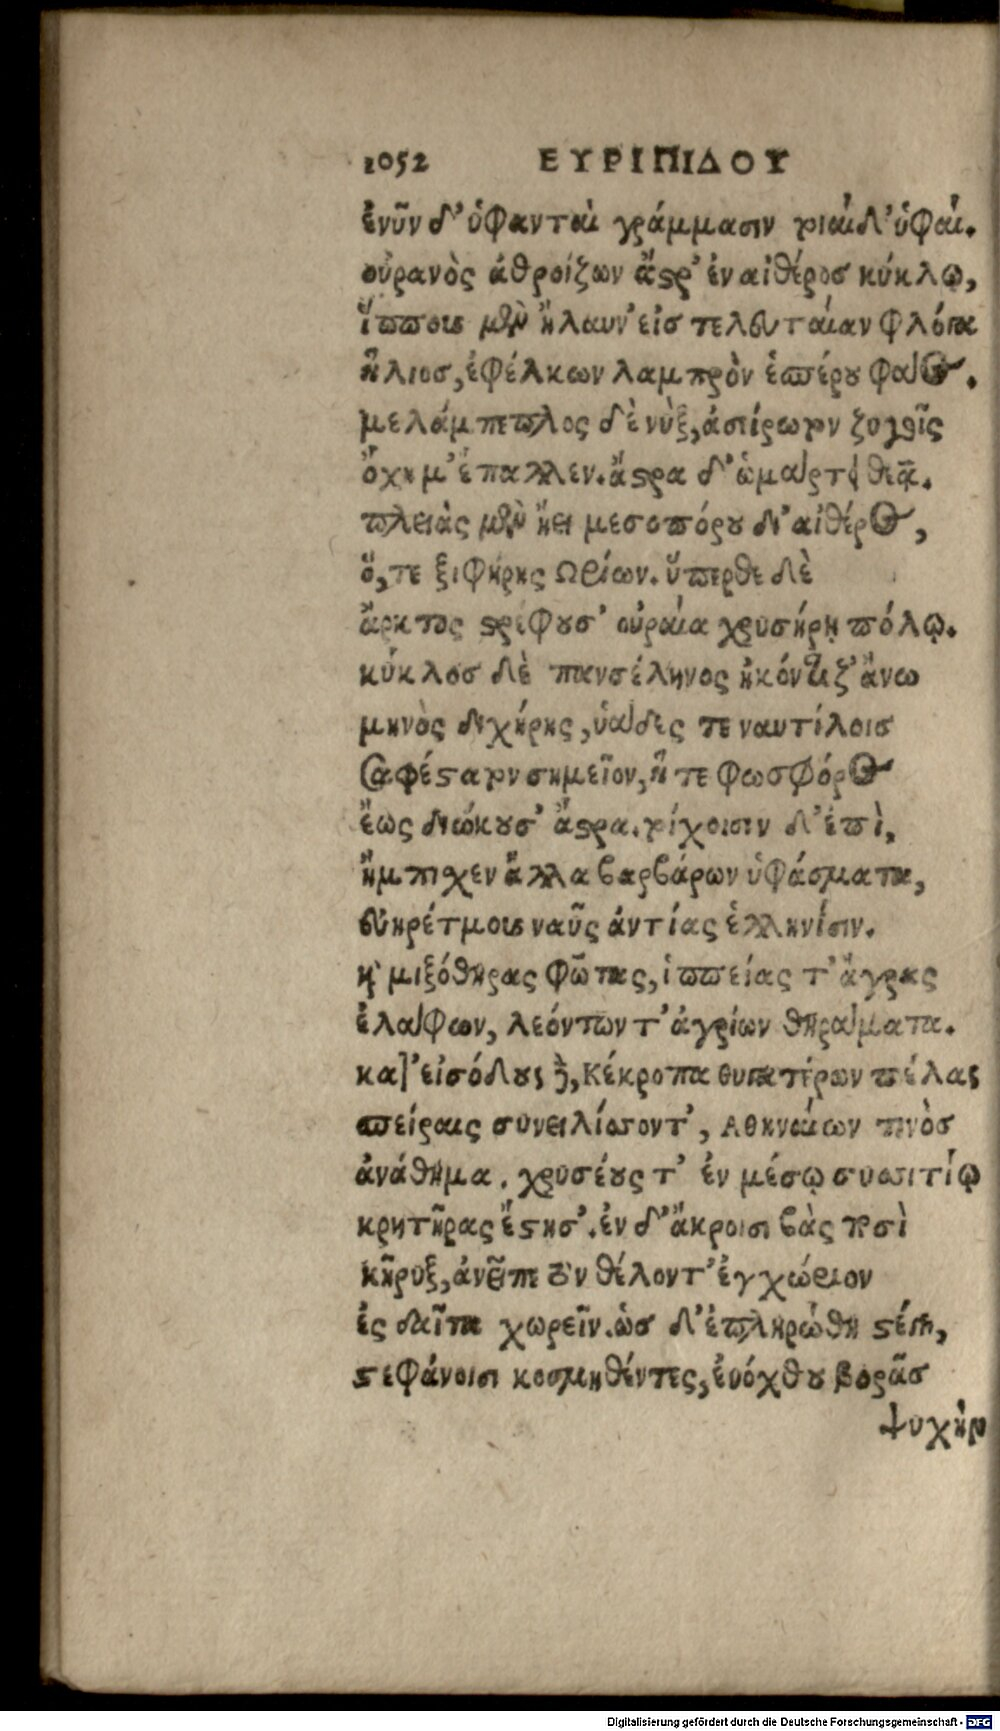 1052 ΕΥΡΙΠΙΔΟΥ
ἐνῦν δ' ὑφανταὶ γράμμασιν τοιαίδ' ὑφαί.
οὐρανὸς ἀθροίζων ἄστρ' ἐν αἰθέρος κύκλῳ,
ἵππους μὲν ἤλαυν' εἰς τελευταίαν φλόγα
ἥλιος, ἐφέλκων λαμπρὸν ἑσπέρου φάος.
μελάμπεπλος δὲ νὺξ, ἀσείρωτον ζυγοῖς
ὄχημ' ἔπαλλεν. ἄστρα δ' ὡμάρτει θεᾷ.
πλειὰς μὲν ᾔει μεσοπόρου δι' αἰθέρος,
ὅ, τε ξιφήρης Ωρίων. ὕπερθε δὲ
ἄρκτος στρέφουσ' οὐραῖα χρυσήρη πόλῳ.
κύκλος δὲ πανσέληνος ἠκόντιζ' ἄνω
μηνὸς διχήρης, ὑάδες τε ναυτίλοις
σαφέστατον σημεῖον, ἥ τε φωσφόρος
ἕως διώκουσ' ἄστρα. τοίχοισιν δ' ἐπὶ,
ἤμπισχεν ἄλλα βαρβάρων ὑφάσματα,
εὐηρέτμους ναῦς ἀντίας ἑλληνίσιν.
καὶ μιξόθηρας φῶτας, ἱππείας τ' ἄγρας
ἐλάφων, λεόντων τ' ἀγρίων θηράματα.
κατ' εἰσόδους δὲ, Κέκροπα θυγατέρων πέλας
σπείραις συνειλίσσοντ', Αθηναίων τινὸς
ἀνάθημα. χρυσέους τ' ἐν μέσῳ συσσιτίῳ
κρητῆρας ἔστησ'. ἐν δ' ἄκροισι βὰς ποσὶ
κῆρυξ, ἀνεῖπε τὸν θέλοντ' ἐγχώριον
ἐς δαῖτα χωρεῖν. ὡς δ' ἐπληρώθη στέγη,
στεφάνοισι κοσμηθέντες, εὐόχθου βορᾶς
ψυχὴν
Digitalisierung gefördert durch die Deutsche Forschungsgemeinschaft - DFG